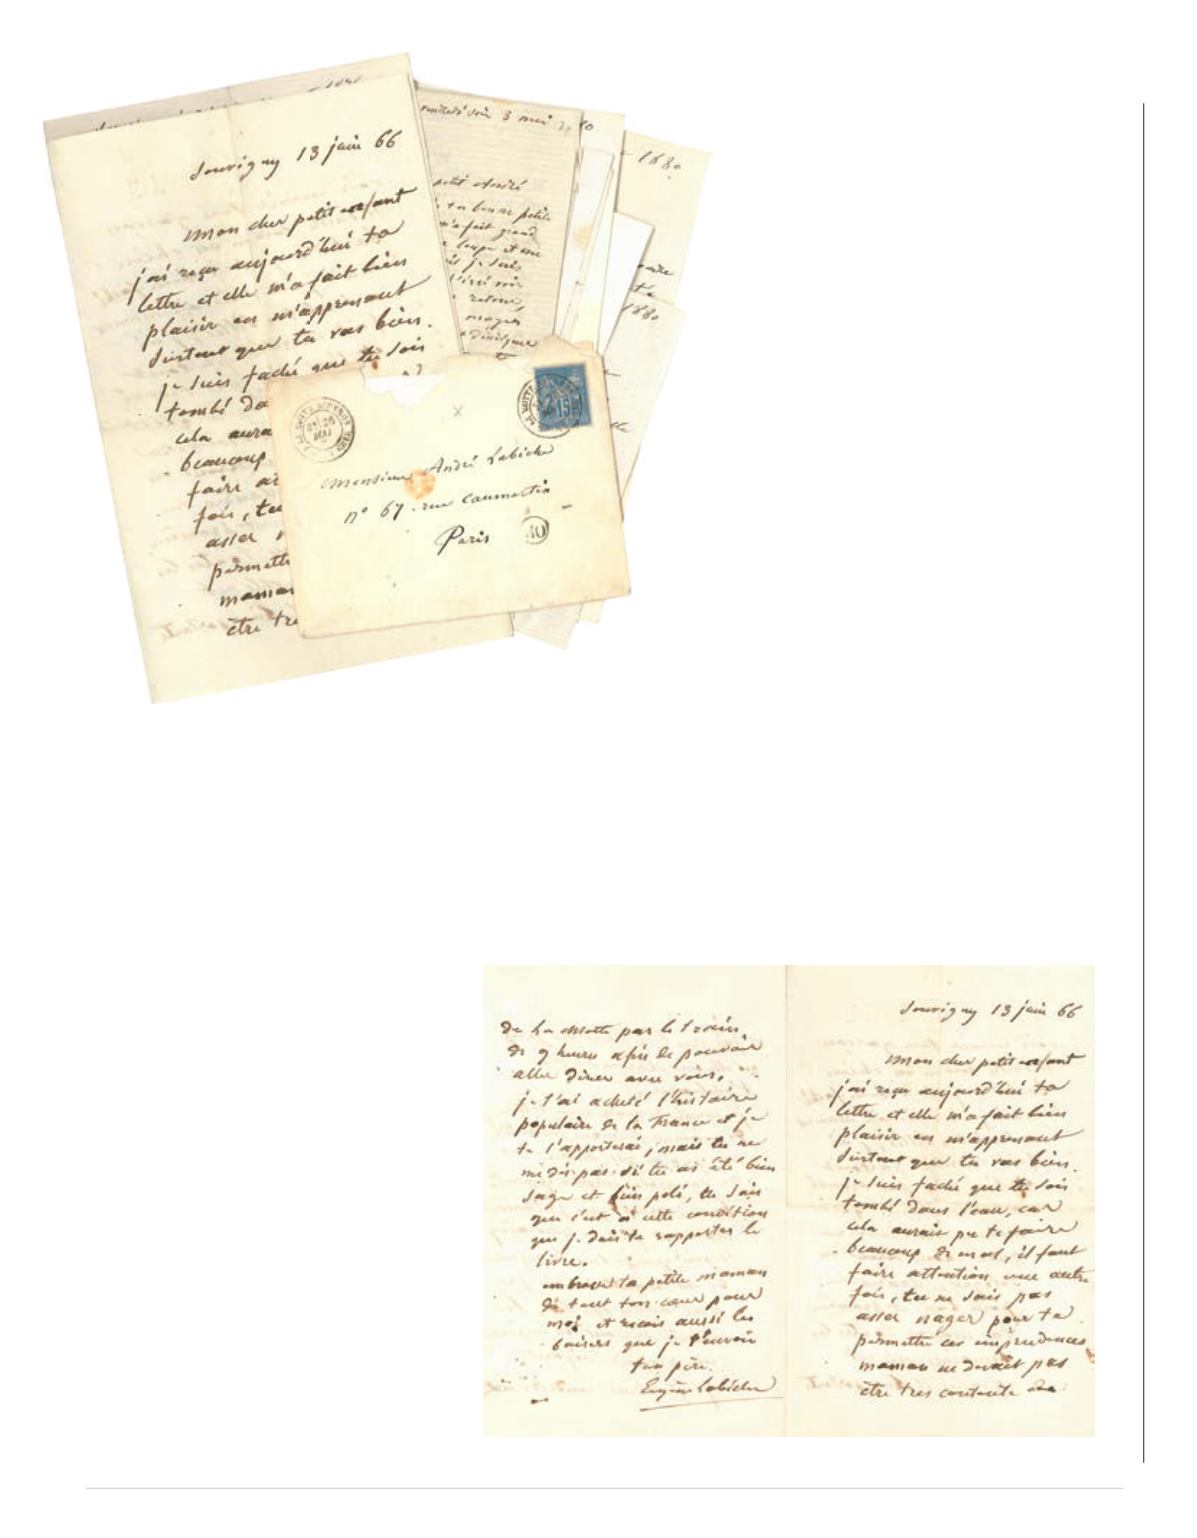 Souvigny 13 juin 66
Mon cher petit enfant
j'ai reçu aujourd'hui ta
lettre et elle m'a fait bien
plaisir en m'apprenant
surtout que tu vas bien.
je suis faché que tu sois
tombé da
cela aura
beaucoup
faire at
fois, tu
assez n
permettr
maman
être tre
soir 3 mai
petit André
ta bonne petite
m'a fait grand
je suis
1880
1880
15
MAI
Monsieur André Labiche
n° 67 rue Caumartin
Paris
de La Motte par le train
de 9 heures afin de pouvoir
aller diner avec vous.
je t'ai acheté l'histoire
populaire de la France et je
te l'apporterai, mais tu ne
me dis pas si tu as été bien
sage et bien poli, tu sais
que c'est à cette condition
que je dois te rapporter le
livre.
embrasse ta petite maman
de tout ton cœur pour
moi et reçois aussi les
baisers que je t'envoie
ton père
Eugène Labiche
Souvigny 13 juin 66
Mon cher petit enfant
j'ai reçu aujourd'hui ta
lettre et elle m'a fait bien
plaisir en m'apprenant
surtout que tu vas bien.
je suis faché que tu sois
tombé dans l'eau, car
cela aurait pu te faire
beaucoup de mal, il faut
faire attention une autre
fois, tu ne sais pas
assez nager pour te
permettre ces imprudences
maman ne devait pas
être tres contente